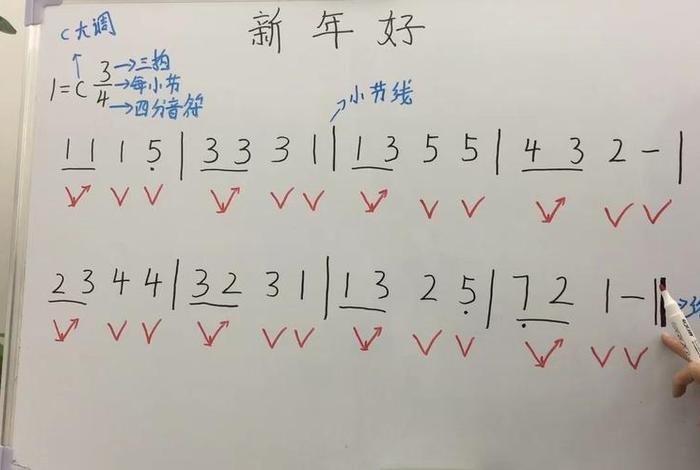 新年好
C大调
1=C 3/4 →三拍 →每小节 →四分音符
小节线
1 1 1 5̣ | 3 3 3 1 | 1 3 5 5 | 4 3 2 - |
2 3 4 4 | 3 2 3 1 | 1 3 2 5̣ | 7̣ 2 1 - ‖